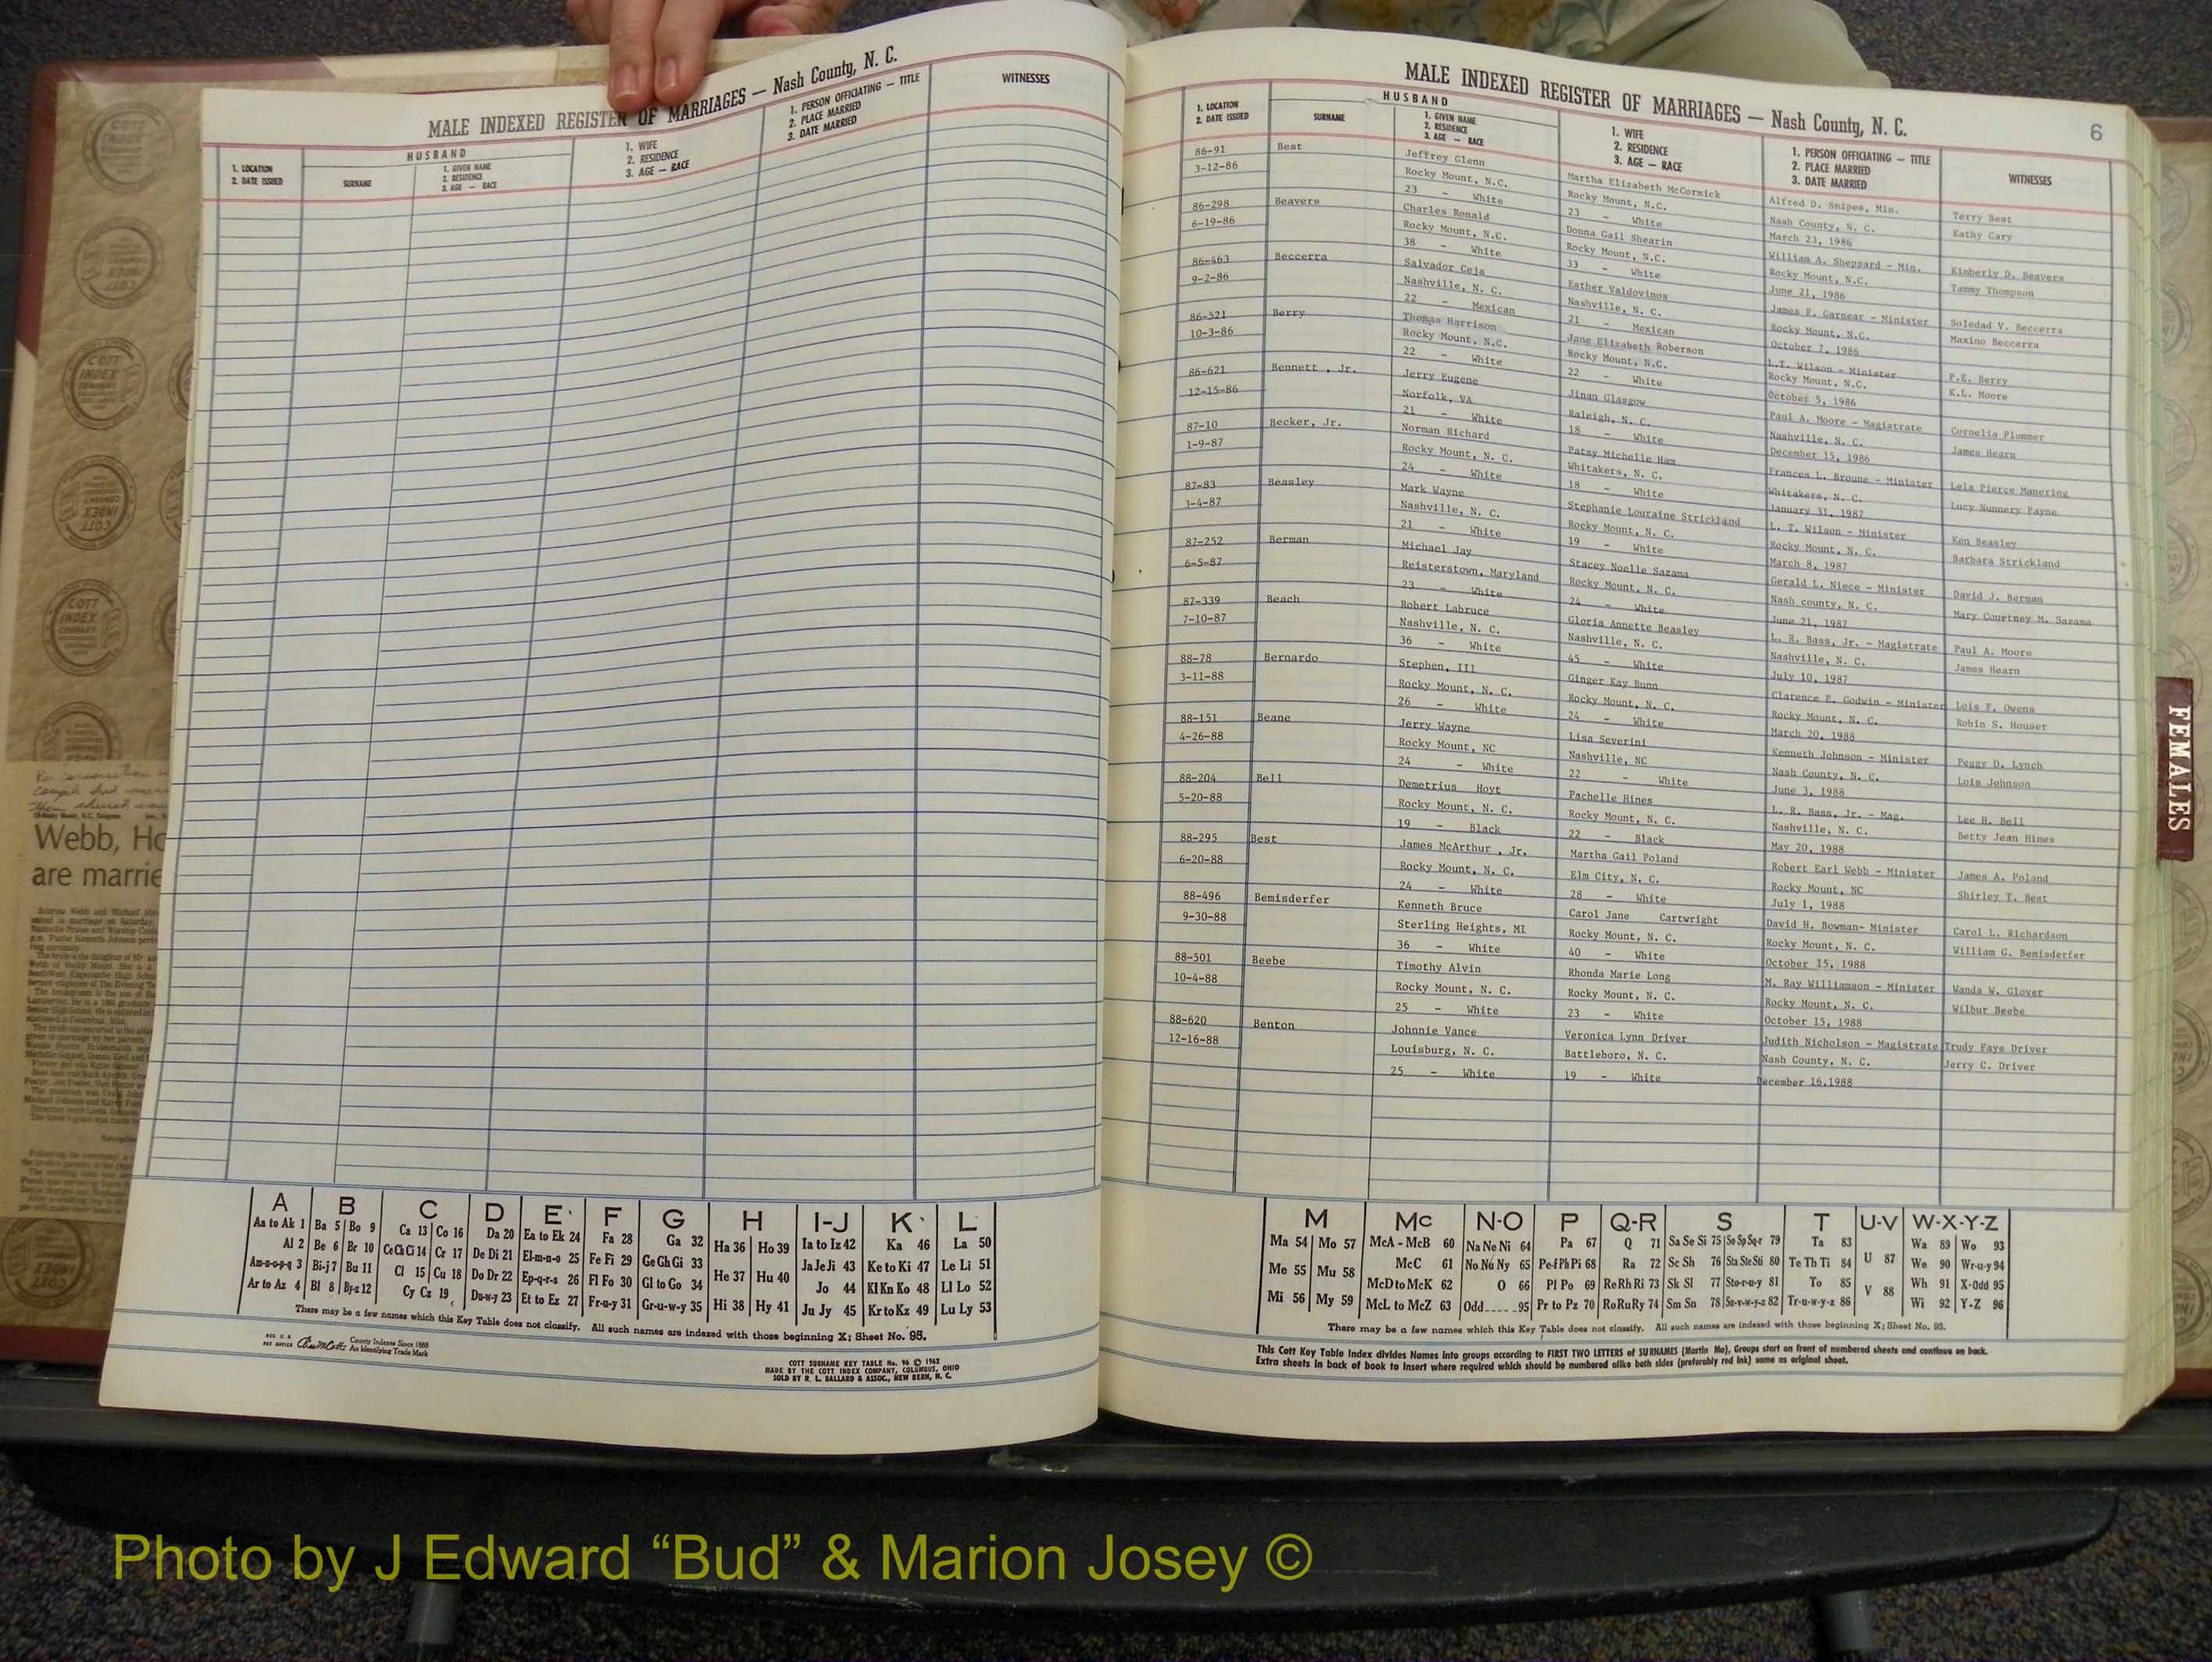 MALE INDEXED REGISTER OF MARRIAGES — Nash County, N. C.
1. LOCATION
2. DATE ISSUED
HUSBAND
SURNAME
1. GIVEN NAME
2. RESIDENCE
3. AGE — RACE
1. WIFE
2. RESIDENCE
3. AGE — RACE
1. PERSON OFFICIATING — TITLE
2. PLACE MARRIED
3. DATE MARRIED
WITNESSES
Webb, Ho
are marrie
A B C D E F G H I-J K L
Aa to Ak 1 Ba 5 Bo 9 Ca 13 Co 16 Da 20 Ea to Ek 24 Fa 28 Ga 32 Ha 36 Ho 39 Ia to Iz 42 Ka 46 La 50
Al 2 Be 6 Br 10 Ce Ch Ci 14 Cr 17 De Di 21 El-m-n-o 25 Fe Fi 29 Ge Gh Gi 33 He 37 Hu 40 Ja Je Ji 43 Ke to Ki 47 Le Li 51
Am-n-o-p-q 3 Bi-j 7 Bu 11 Cl 15 Cu 18 Do Dr 22 Ep-q-r-s 26 Fl Fo 30 Gl to Go 34 Hi 38 Hy 41 Jo 44 Kl Kn Ko 48 Ll Lo 52
Ar to Az 4 Bl 8 By-z 12 Cy Cz 19 Du-w-y 23 Et to Ez 27 Fr-u-y 31 Gr-u-w-y 35 Ju Jy 45 Kr to Kz 49 Lu Ly 53
There may be a few names which this Key Table does not classify. All such names are indexed with those beginning X; Sheet No. 95.
County Indexes Since 1888
An Identifying Trade Mark
COTT SURNAME KEY TABLE No. 96 © 1962
MADE BY THE COTT INDEX COMPANY, COLUMBUS, OHIO
SOLD BY R. L. BALLARD & ASSOC., NEW BERN, N. C.
MALE INDEXED REGISTER OF MARRIAGES — Nash County, N. C.
6
1. LOCATION
2. DATE ISSUED
HUSBAND
SURNAME
1. GIVEN NAME
2. RESIDENCE
3. AGE — RACE
1. WIFE
2. RESIDENCE
3. AGE — RACE
1. PERSON OFFICIATING — TITLE
2. PLACE MARRIED
3. DATE MARRIED
WITNESSES
86-91 Best Jeffrey Glenn Martha Elizabeth McCormick Alfred D. Snipes, Min. Terry Best
3-12-86 Rocky Mount, N.C. Rocky Mount, N.C. Nash County, N. C. Kathy Cary
23 - White 23 - White March 23, 1986
86-298 Beavers Charles Ronald Donna Gail Shearin William A. Sheppard - Min. Kimberly D. Beavers
6-19-86 Rocky Mount, N.C. Rocky Mount, N.C. Rocky Mount, N.C. Tammy Thompson
38 - White 33 - White June 21, 1986
86-463 Beccerra Salvador Ceja Esther Valdovinos James F. Garnear - Minister Soledad V. Beccerra
9-2-86 Nashville, N. C. Nashville, N. C. Rocky Mount, N.C. Maxino Beccerra
22 - Mexican 21 - Mexican October 7, 1986
86-521 Berry Thomas Harrison Jane Elizabeth Roberson L.T. Wilson - Minister P.E. Berry
10-3-86 Rocky Mount, N.C. Rocky Mount, N.C. Rocky Mount, N.C. K.L. Moore
22 - White 22 - White October 5, 1986
86-621 Bennett , Jr. Jerry Eugene Jinan Glasgow Paul A. Moore - Magistrate Cornelia Plummer
12-15-86 Norfolk, VA Raleigh, N. C. Nashville, N. C. James Hearn
21 - White 18 - White December 15, 1986
87-10 Becker, Jr. Norman Richard Patsy Michelle Ham Frances L. Broune - Minister Lela Pierce Manering
1-9-87 Rocky Mount, N. C. Whitakers, N. C. Whitakers, N. C. Lucy Nunnery Payne
24 - White 18 - White January 31, 1987
87-83 Beasley Mark Wayne Stephanie Louraine Strickland L. T. Wilson - Minister Ken Beasley
3-4-87 Nashville, N. C. Rocky Mount, N. C. Rocky Mount, N. C. Barbara Strickland
21 - White 19 - White March 8, 1987
87-252 Berman Michael Jay Stacey Noelle Sazama Gerald L. Niece - Minister David J. Berman
6-5-87 Reisterstown, Maryland Rocky Mount, N. C. Nash county, N. C. Mary Courtney M. Sazama
23 - White 24 - White June 21, 1987
87-339 Beach Robert Labruce Gloria Annette Beasley L. R. Bass, Jr. - Magistrate Paul A. Moore
7-10-87 Nashville, N. C. Nashville, N. C. Nashville, N. C. James Hearn
36 - White 45 - White July 10, 1987
88-78 Bernardo Stephen, III Ginger Kay Bunn Clarence E. Godwin - Minister Lois F. Owens
3-11-88 Rocky Mount, N. C. Rocky Mount, N. C. Rocky Mount, N. C. Robin S. Houser
26 - White 24 - White March 20, 1988
88-151 Beane Jerry Wayne Lisa Severini Kenneth Johnson - Minister Peggy D. Lynch
4-26-88 Rocky Mount, NC Nashville, NC Nash County, N. C. Lois Johnson
24 - White 22 - White June 3, 1988
88-204 Bell Demetrius Hoyt Pachelle Hines L. R. Bass, Jr. - Mag. Lee H. Bell
5-20-88 Rocky Mount, N. C. Rocky Mount, N. C. Nashville, N. C. Betty Jean Hines
19 - Black 22 - Black May 20, 1988
88-295 Best James McArthur , Jr. Martha Gail Poland Robert Earl Webb - Minister James A. Poland
6-20-88 Rocky Mount, N. C. Elm City, N. C. Rocky Mount, NC Shirley T. Best
24 - White 28 - White July 1, 1988
88-496 Bemisderfer Kenneth Bruce Carol Jane Cartwright David H. Bowman- Minister Carol L. Richardson
9-30-88 Sterling Heights, MI Rocky Mount, N. C. Rocky Mount, N. C. William G. Bemisderfer
36 - White 40 - White October 15, 1988
88-501 Beebe Timothy Alvin Rhonda Marie Long M. Ray Williamson - Minister Wanda W. Glover
10-4-88 Rocky Mount, N. C. Rocky Mount, N. C. Rocky Mount, N. C. Wilbur Beebe
25 - White 23 - White October 15, 1988
88-620 Benton Johnnie Vance Veronica Lynn Driver Judith Nicholson - Magistrate Trudy Faye Driver
12-16-88 Louisburg, N. C. Battleboro, N. C. Nash County, N. C. Jerry C. Driver
25 - White 19 - White December 16,1988
FEMALES
M Mc N-O P Q-R S T U-V W-X-Y-Z
Ma 54 Mo 57 McA - McB 60 Na Ne Ni 64 Pa 67 Q 71 Sa Se Si 75 So Sp Sq-r 79 Ta 83 U 87 Wa 89 Wo 93
Me 55 Mu 58 McC 61 No Nu Ny 65 Pe-f Ph Pi 68 Ra 72 Sc Sh 76 Sta Ste Sti 80 Te Th Ti 84 V 88 We 90 Wr-u-y 94
Mi 56 My 59 McD to McK 62 O 66 Pl Po 69 Re Rh Ri 73 Sk Sl 77 Sto-r-u-y 81 To 85 Wh 91 X-Odd 95
McL to McZ 63 Odd 95 Pr to Pz 70 Ro Ru Ry 74 Sm Sn 78 Su-v-w-y-z 82 Tr-u-w-y-z 86 Wi 92 Y-Z 96
There may be a few names which this Key Table does not classify. All such names are indexed with those beginning X; Sheet No. 95.
This Cott Key Table Index divides Names into groups according to FIRST TWO LETTERS of SURNAMES (Martin Ma), Groups start on front of numbered sheets and continue on back.
Extra sheets in back of book to insert where required which should be numbered alike both sides (preferably red ink) same as original sheet.
Photo by J Edward “Bud” & Marion Josey ©